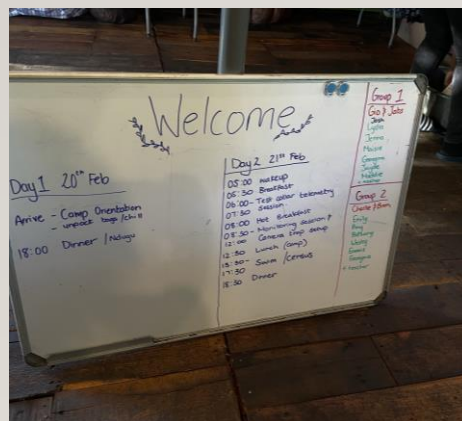 Welcome
Day 1 20th Feb
Arrive - Camp Orientation
- unpack bags/chill
18:00 Dinner /
Day 2 21st Feb
05:00 wakeup
05:30 Breakfast
06:00 - Test collar telemetry
07:30 session
08:00 Hot Breakfast
08:30 - Monitoring session &
12:00 Camera trap setup
12:30 Lunch (camp)
15:30 - Swim / census
17:30
18:30 Dinner
Group 1
Josh
Lydia
Jenna
Maisie
Georgina
+ teacher
Group 2
Emily
Amy
Bethany
Wesley
+ teacher